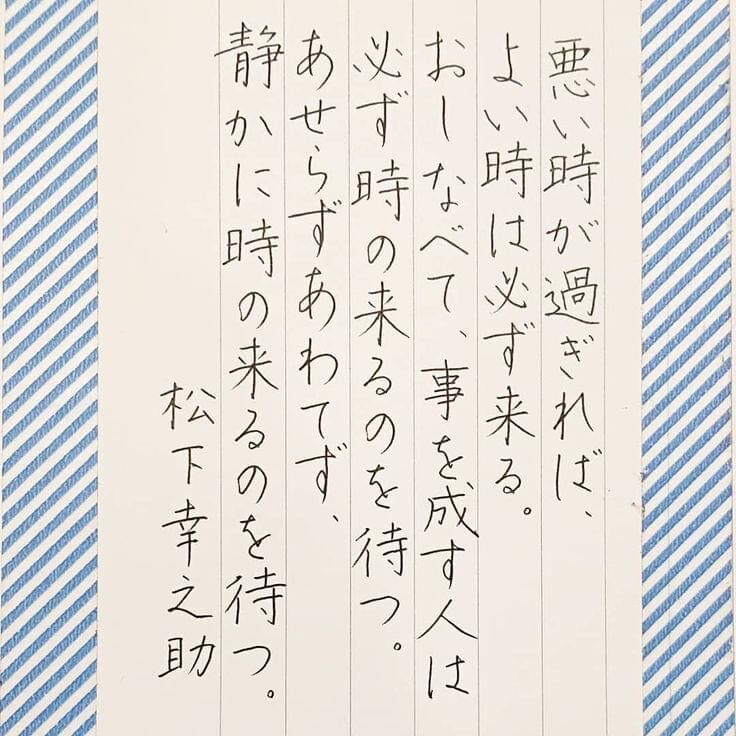 悪い時が過ぎれば、
よい時は必ず来る。
おしなべて、事を成す人は
必ず時の来るのを待つ。
あせらずあわてず、
静かに時の来るのを待つ。
松下幸之助